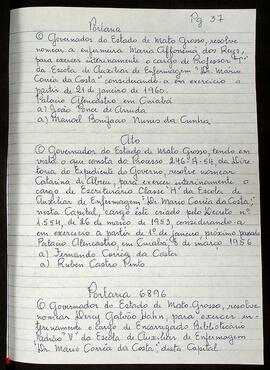 Portaria
Pg 37
O Governador do Estado de Mato Grosso, resolve
nomiar a enfermeira Maria Affonsina dos Reys,
para exercer internamente o cargo de Professor "T"
da Escola de Auxiliar de Enfermagem "Dr. Mário
Corrêa da Costa" considerando-a em exercício a
partir de 21 de janeiro de 1960.
Palacio Alencastro em Cuiabá
a) João Ponce de Arruda
a) Manoel Bonifacio Nunes da Cunha
Ato
O Governador do Estado de Mato Grosso, tendo em
vista o que consta do Processo 246-A-54, da Dire
toria do Expediente do Governo, resolve nomear
Catarina de Abreu, para exercer interinamente o
cargo de Escriturário Classe "H" da Escola de
Auxiliar de Enfermagem "Dr. Mario Corrêa da Costa,"
nesta Capital, cargo este criado pelo Decreto nº
1.554, de 26 de março de 1953, considerando-a
em exercício a partir de 1º de janeiro próximo passado
Palacio Alencastro, em Cuiabá, 8 de março 1956
a) Fernando Corrêa da Costa
a) Rubens Castro Pinto
Portaria 6896
O Governador do Estado de Mato-Grosso, resolve
nomear Dercy Galvão Jahn, para exercer in-
ternamente o cargo de Encarregado Biblioteca
Padrão "V" da Escola de Auxiliar de Enfermagem
"Dr. Mario Corrêa da Costa," desta Capital